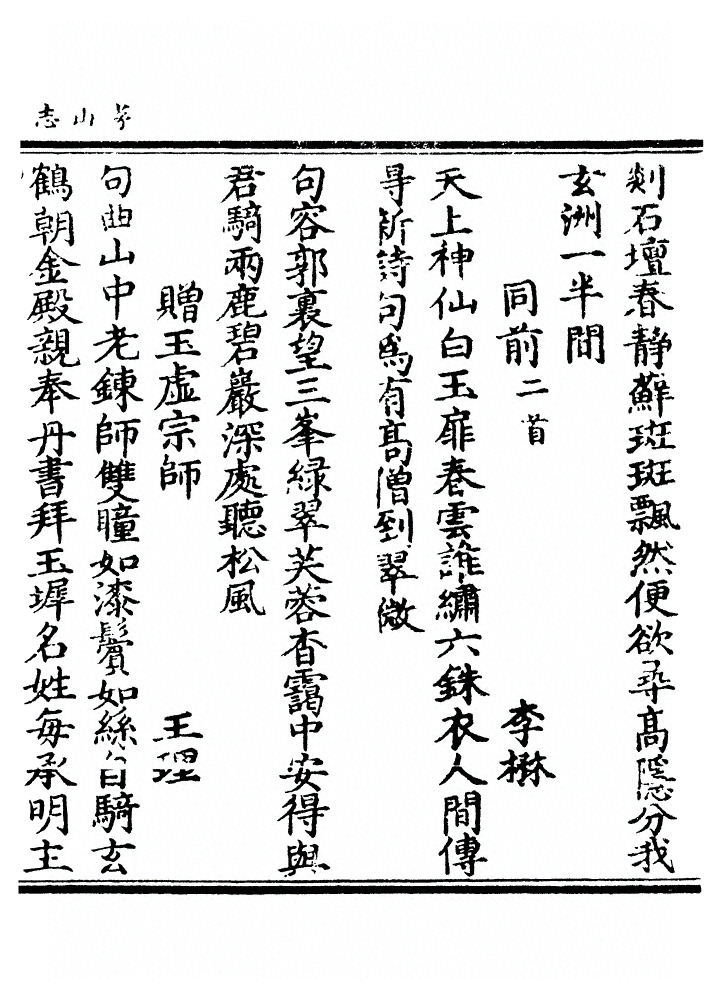 茅山志
剡石壇春靜蘚斑斑飄然便欲尋高隱分我
玄洲一半間
同前二首 李楙
天上神仙白玉扉春雲誰繡六銖衣人間傳
尋新詩句爲有高僧到翠微
句容郭裏望三峯綠翠芙蓉杳靄中安得與
君騎兩鹿碧巖深處聽松風
贈玉虛宗師 王理
句曲山中老鍊師雙瞳如漆鬢如絲自騎玄
鶴朝金殿親奉丹書拜玉墀名姓每承明主